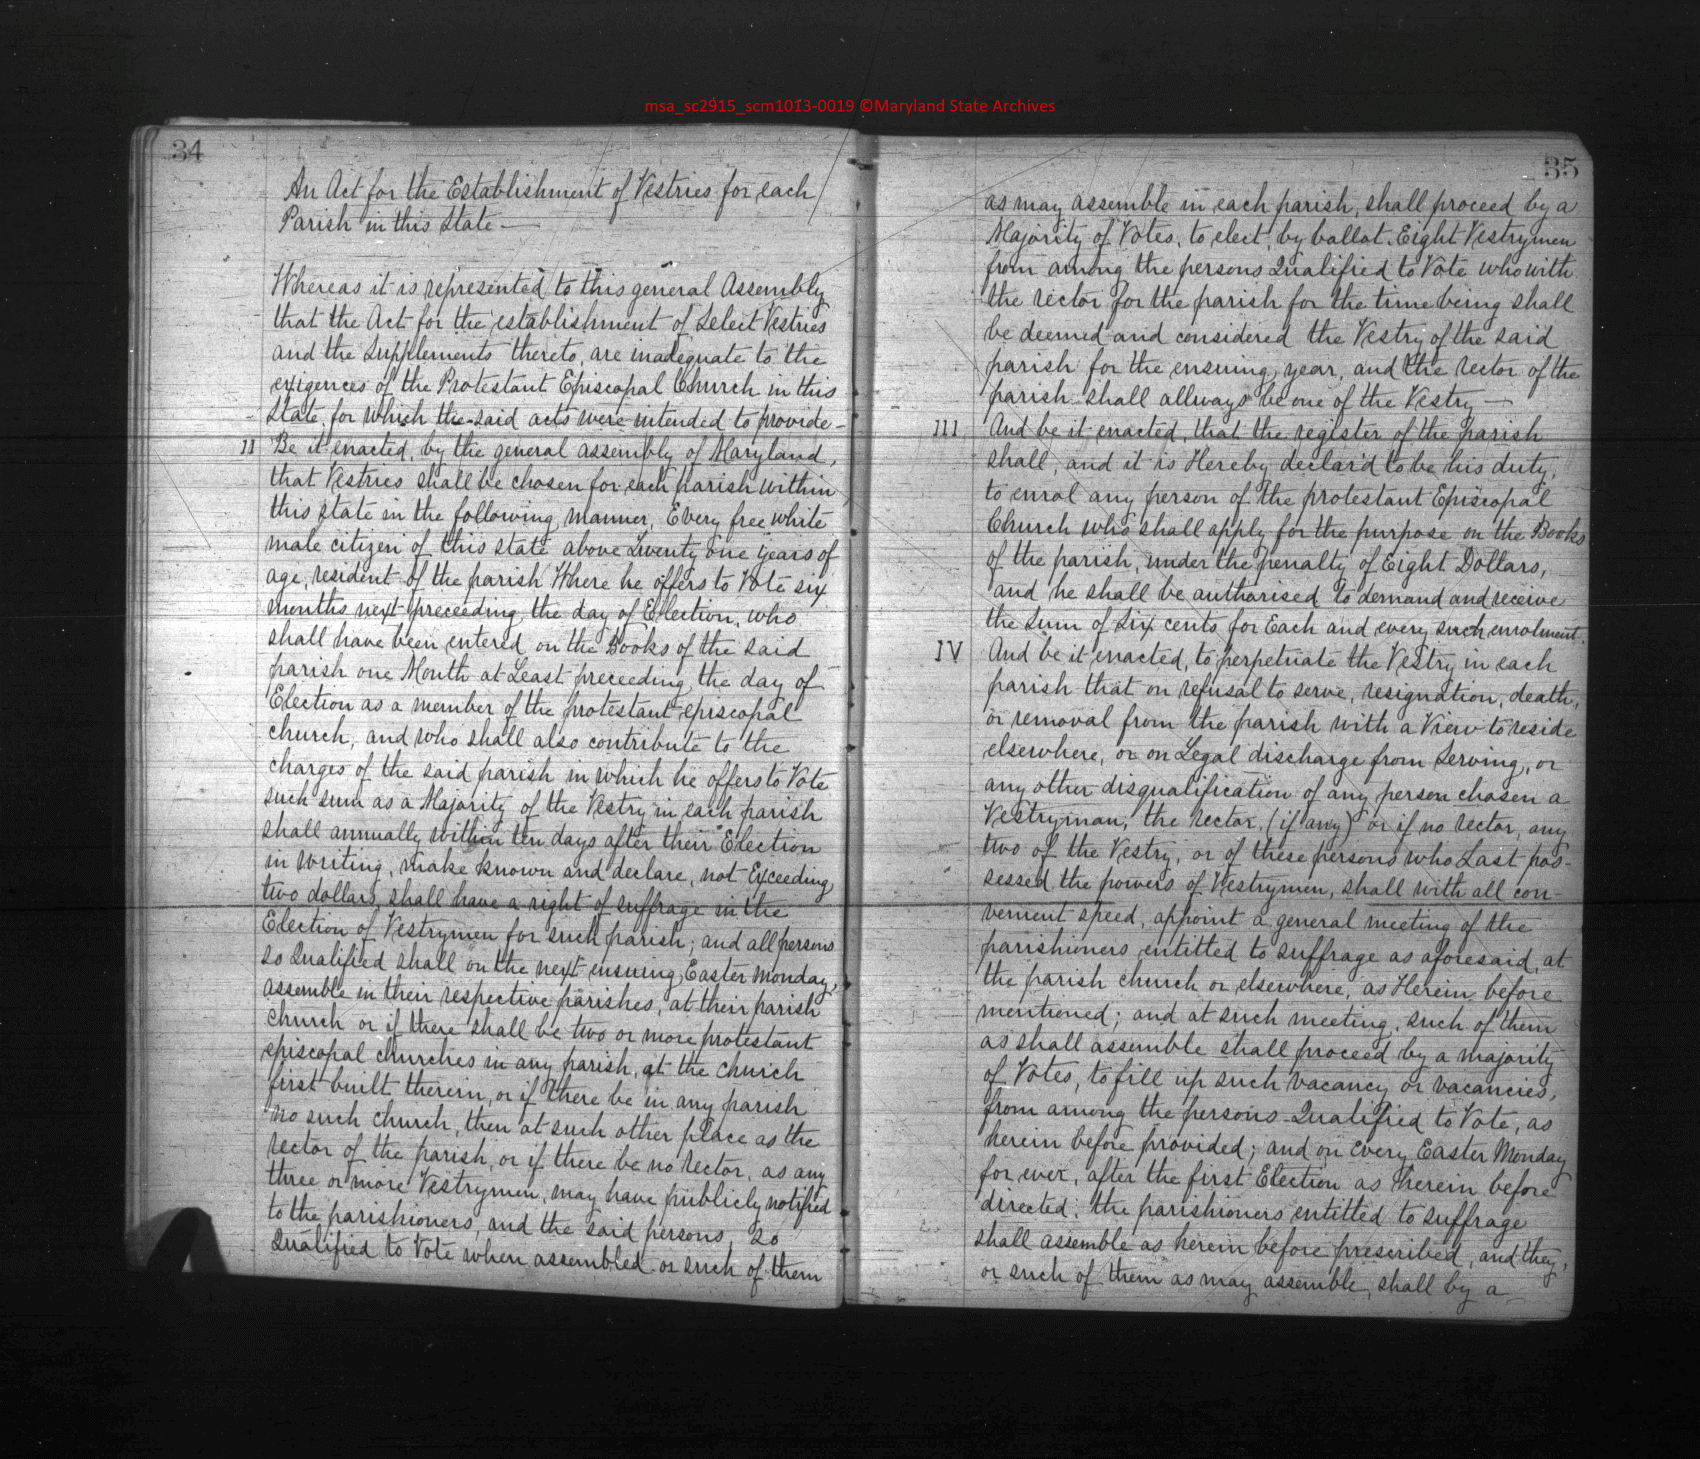 msa_sc2915_scm1013-0019 ©Maryland State Archives
34
An Act for the Establishment of Vestries for each
Parish in this State —
Whereas it is represented to this general Assembly
that the Act for the establishment of Select Vestries
and the Supplements thereto, are inadequate to the
exigences of the Protestant Episcopal Church in this
State, for which the said acts were intended to provide—
II Be it enacted, by the general assembly of Maryland,
that Vestries shall be chosen for each parish within
this state in the following manner, Every free white
male citizen of this state above Twenty one years of
age, resident of the parish Where he offers to Vote six
months next preceeding the day of Election, who
shall have been entered on the Books of the said
parish one Month at Least preceeding the day of
Election as a member of the protestant episcopal
church, and who shall also contribute to the
charges of the said parish in which he offers to Vote
such sum as a Majority of the Vestry in each parish
shall annually within ten days after their Election
in writing, make known and declare, not Exceeding
two dollars, shall have a right of suffrage in the
Election of Vestrymen for such parish; and all persons
so Qualified shall on the next ensuing Easter Monday,
assemble in their respective parishes, at their parish
church or if there shall be two or more protestant
episcopal churches in any parish, at the church
first built therein, or if there be in any parish
no such church, then at such other place as the
rector of the parish, or if there be no rector, as any
three or more Vestrymen, may have publicly notified
to the parishioners, and the said persons, so
Qualified to Vote when assembled or such of them
35
as may assemble in each parish, shall proceed by a
Majority of Votes, to elect, by ballot, Eight Vestrymen
from among the persons Qualified to Vote who with
the rector for the parish for the time being shall
be deemed and considered the Vestry of the said
parish for the ensuing year, and the rector of the
parish shall allways be one of the Vestry —
III And be it enacted, that the register of the parish
shall, and it is Hereby declar'd to be his duty,
to enrol any person of the protestant Episcopal
Church who shall apply for the purpose on the Books
of the parish, under the penalty of Eight Dollars,
and he shall be authorised to demand and receive
the Sum of Six cents for Each and every such enrolment.
IV And be it enacted, to perpetuate the Vestry in each
parish that on refusal to serve, resignation, death,
or removal from the parish with a View to reside
elsewhere, or on Legal discharge from Serving, or
any other disqualification of any person chosen a
Vestryman, the rector, (if any) or if no rector, any
two of the Vestry, or of these persons who Last pos-
sessed the powers of Vestrymen, shall with all con-
venient speed, appoint a general meeting of the
parishioners entitted to suffrage as aforesaid, at
the parish church or elsewhere, as Herein before
mentioned; and at such meeting, such of them
as shall assemble shall proceed by a majority
of Votes, to fill up such vacancy or vacancies,
from among the persons Qualified to Vote, as
herein before provided; and on Every Easter Monday
for ever, after the first Election as herein before
directed, the parishioners entitted to suffrage
shall assemble as herein before prescribed, and they,
or such of them as may assemble, shall by a